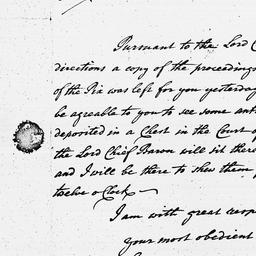 Pursuant to the Lord
directions a copy of the proceedings
of the Pix was left for you yesterday
be agreeable to you to see some
deposited in a Chest in the Court of
the Lord Chief Baron will sit there
and I will be there to shew them
twelve o Clock —
I am with great
your most obedient